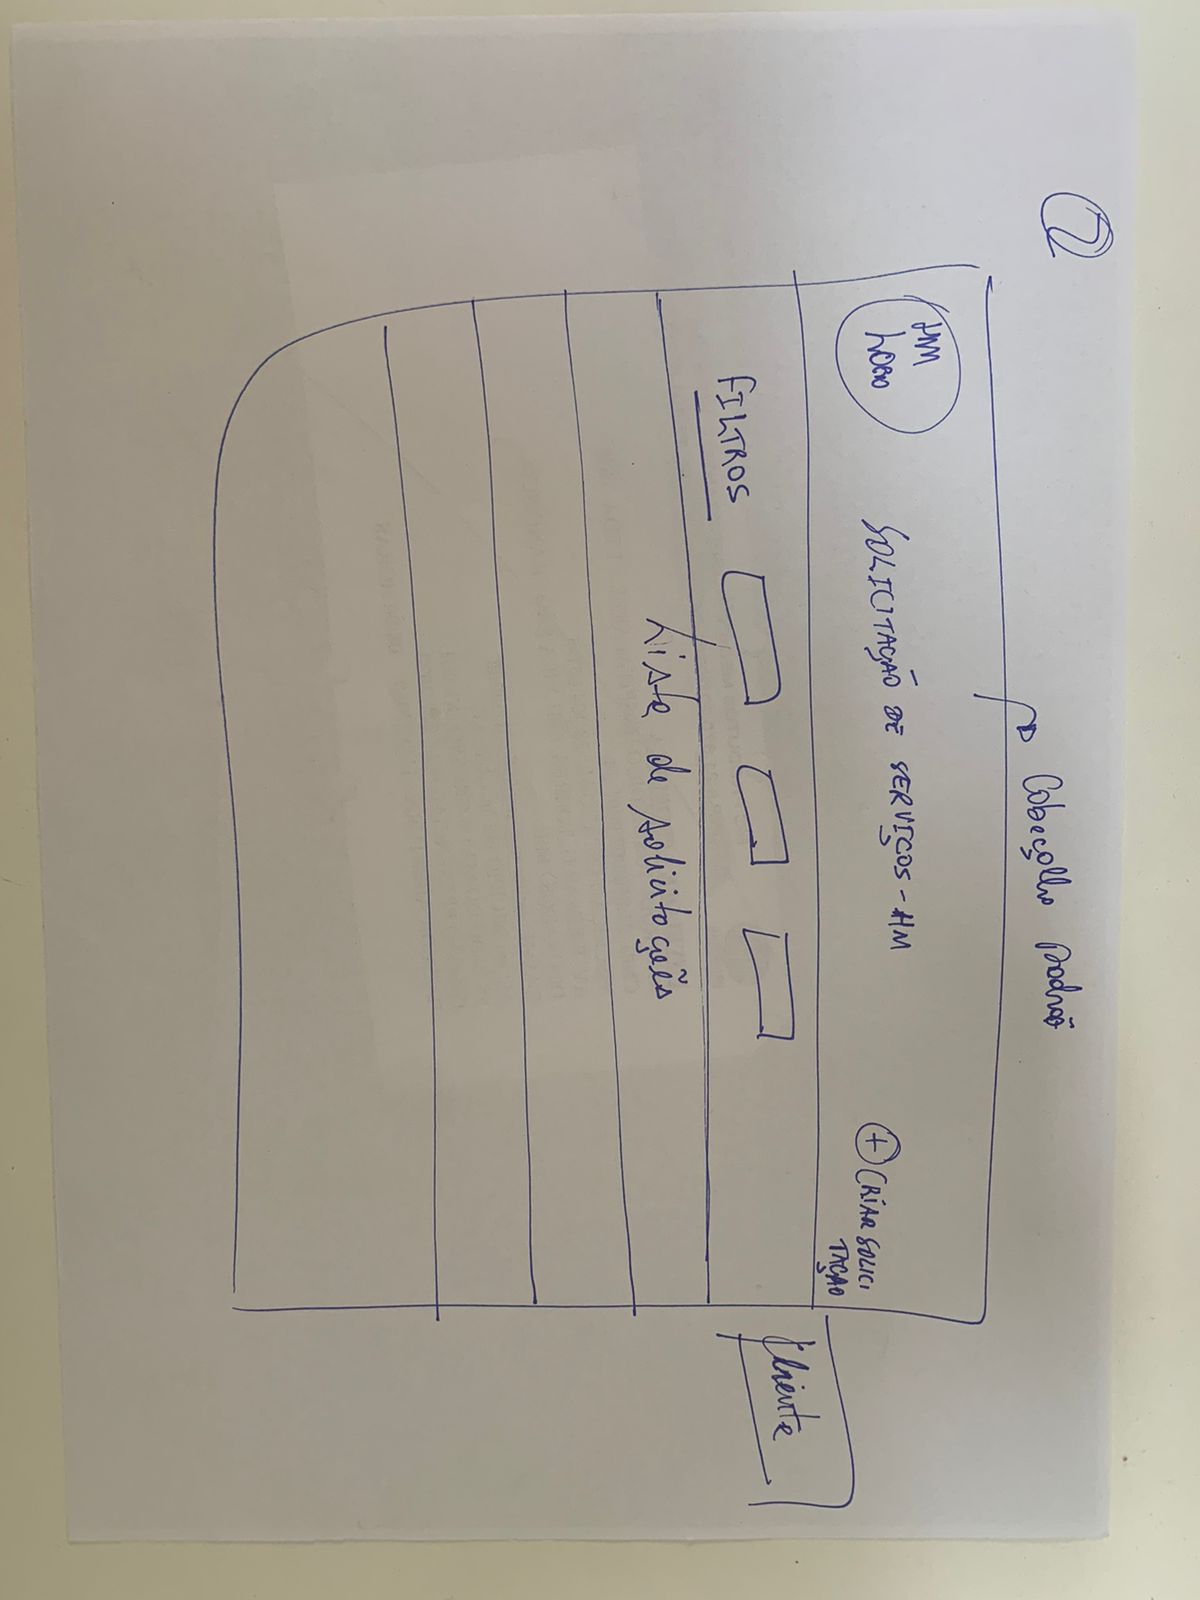 2
Cabeçalho padrão
HM
LOGO
SOLICITAÇÃO DE SERVIÇOS - HM
+ CRIAR SOLICI
TAÇÃO
Cliente
FILTROS
Lista de solicitações